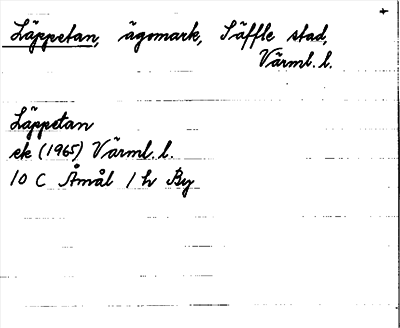 +
Läppetan, ägomark, Säffle stad,
Värml. l.
Läppetan
ek (1965) Värml. l.
10 C Åmål 1 h By